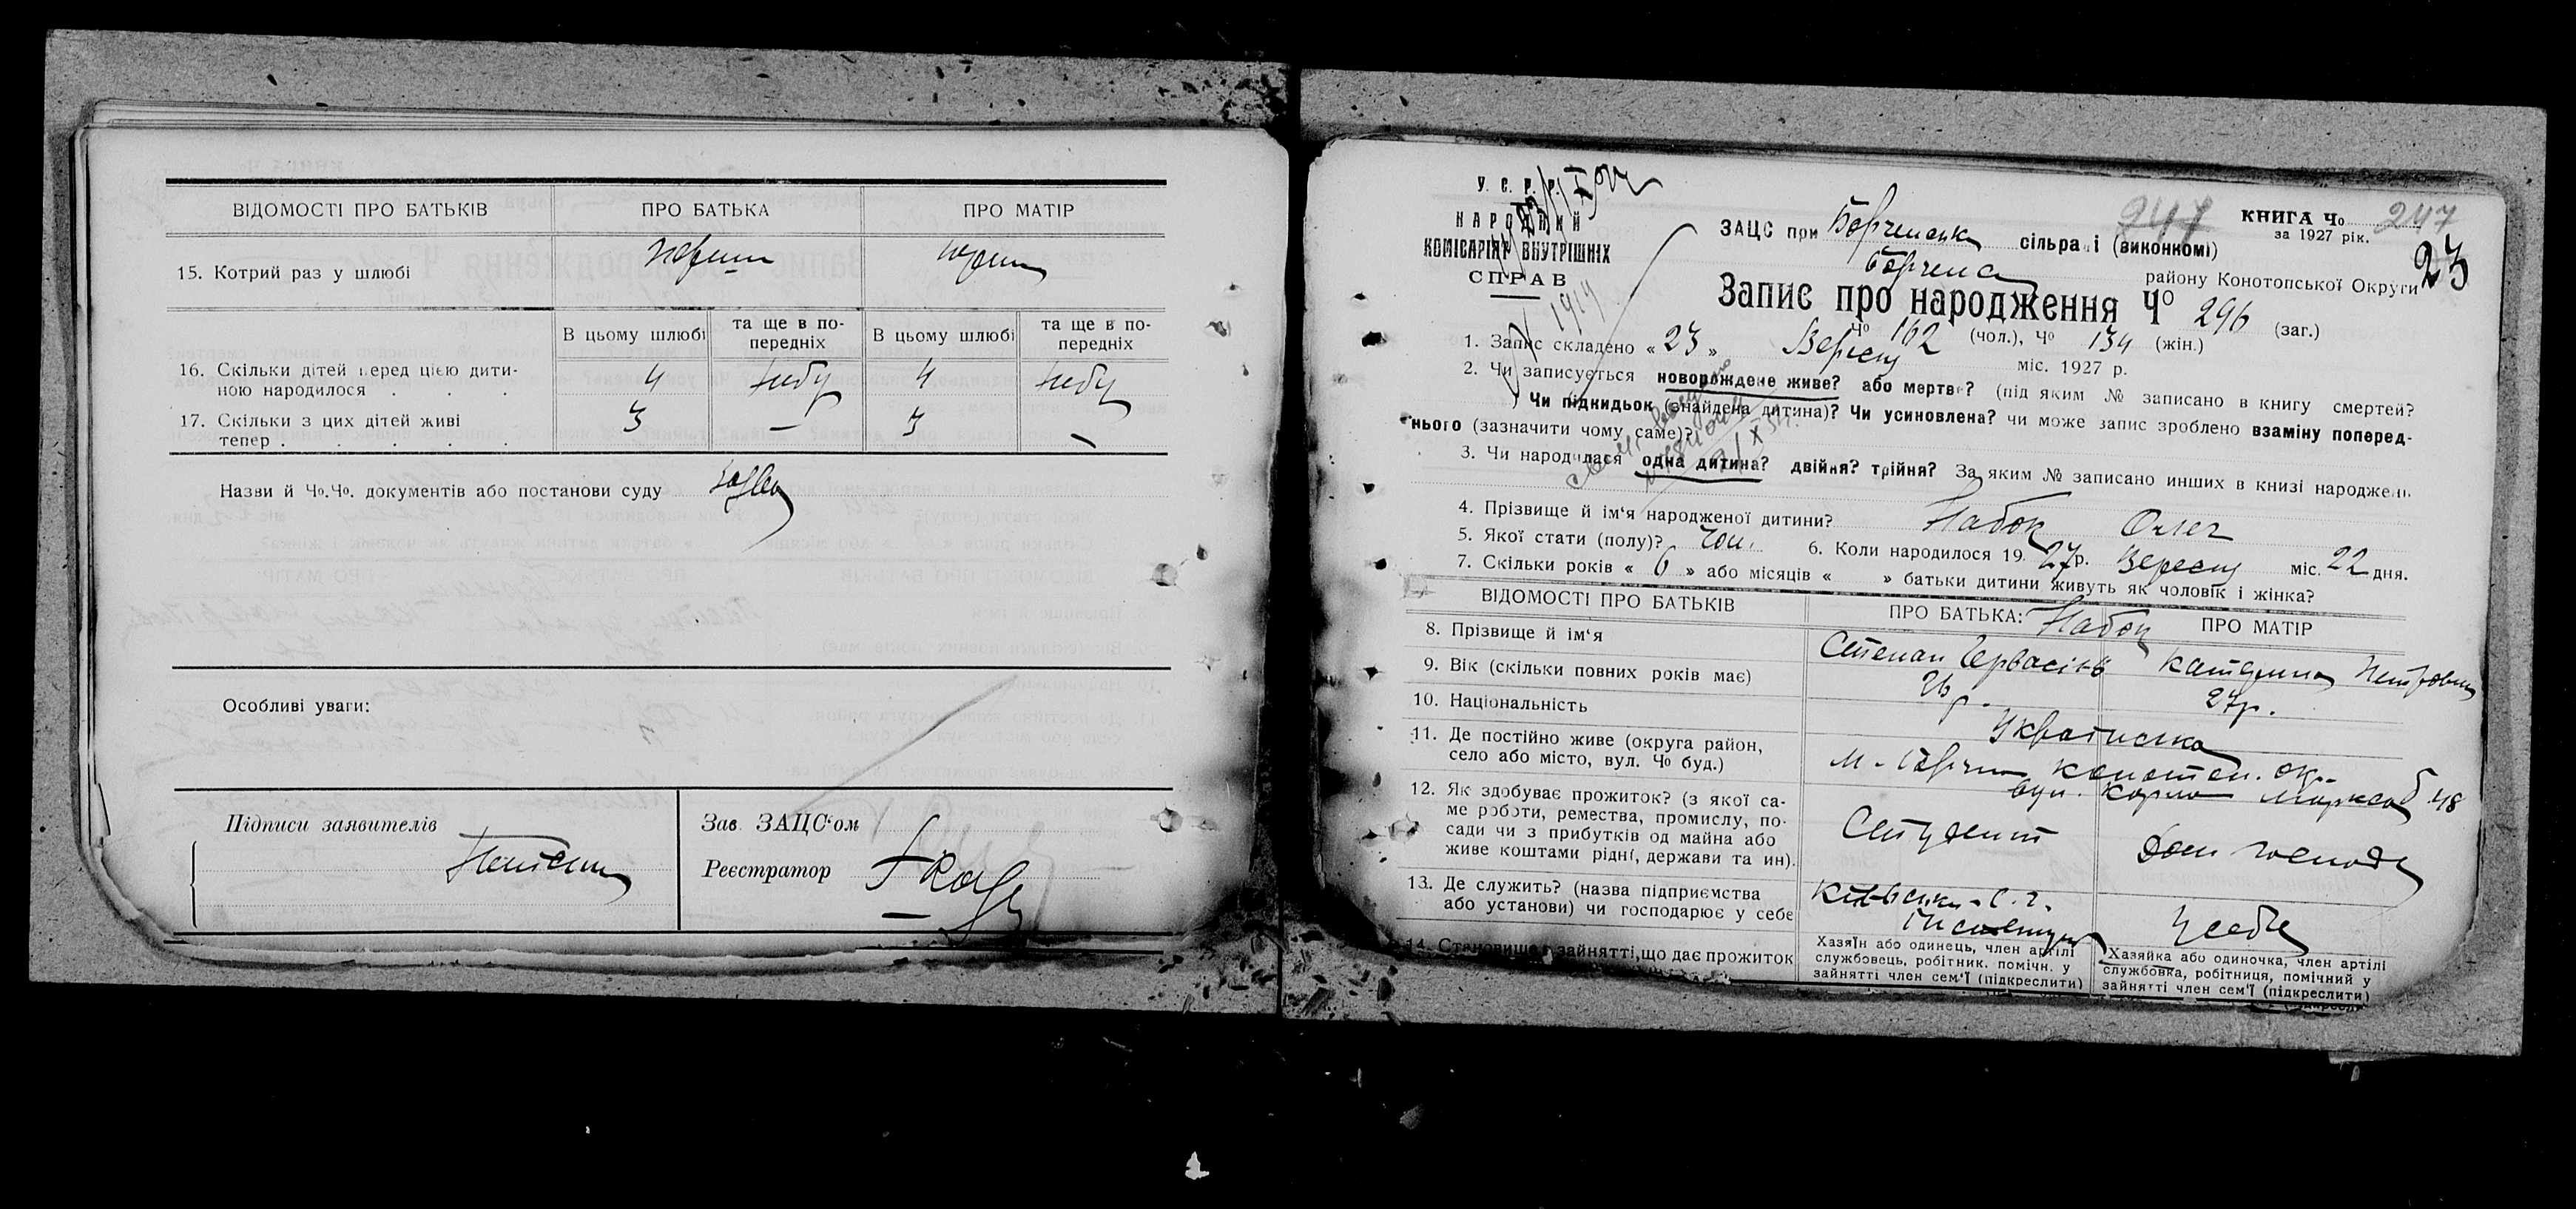 ВІДОМОСТІ ПРО БАТЬКІВ ПРО БАТЬКА ПРО МАТІР
15. Котрий раз у шлюбі перши перши
В цьому шлюбі та ще в по-передніх В цьому шлюбі та ще в по-передніх
16. Скільки дітей перед цією дити-
ною народилося . . . 4 небу 4 небу
17. Скільки з цих дітей живі
тепер . . . . . 3 — 3 —
Назви й Чо.Чо. документів або постанови суду
Особливі уваги:
Підписи заявителів
Зав. ЗАЦС‘ом
Реєстратор
У. С. Р. Р.
НАРОДНИЙ
КОМІСАРІЯТ ВНУТРІШНІХ
СПРАВ
247 КНИГА Чо 247
за 1927 рік.
23
ЗАЦС при сільраді (виконкомі)
району Конотопської Округи
Запис про народження Чо 296 (заг.)
Чо 162 (чол.), Чо 134 (жін.)
1. Запис складено « 23 » Вересня міс. 1927 р.
2. Чи записується новорождене живе? або мертве? (під яким № записано в книгу смертей?
) Чи підкидьок (знайдена дитина)? Чи усиновлена? чи може запис зроблено взаміну поперед-
нього (зазначити чому саме)?
3. Чи народилася одна дитина? двійня? трійня? За яким № записано инших в книзі народжень
4. Прізвище й ім‘я народженої дитини? Набок Олег
5. Якої стати (полу)? Чол. 6. Коли народилося 19 27 р. Вересня міс. 22 дня.
7. Скільки років « 6 » або місяців « » батьки дитини живуть як чоловік і жінка?
ВІДОМОСТІ ПРО БАТЬКІВ ПРО БАТЬКА: ПРО МАТІР
Набок
8. Прізвище й ім‘я Степан Катерина Петровна
9. Вік (скільки повних років має) 26 р. 27 р.
10. Національність Українська
11. Де постійно живе (округа район,
село або місто, вул. Чо буд.) вул. Карла Маркса 48
12. Як здобуває прожиток? (з якої са-
ме роботи, ремества, промислу, по-
сади чи з прибутків од майна або
живе коштами рідні, держави та ин). Студент Дом господ
13. Де служить? (назва підприємства
або установи) чи господарює у себе у себе
14. Становище в зайнятті, що дає прожиток
Хазяїн або одинець, член артілі
службовець, робітник. помічн. у
зайнятті член сем‘ї (підкреслити)
Хазяйка або одиночка, член артілі
службовка, робітниця, помічний у
зайнятті член сем‘ї (підкреслити)